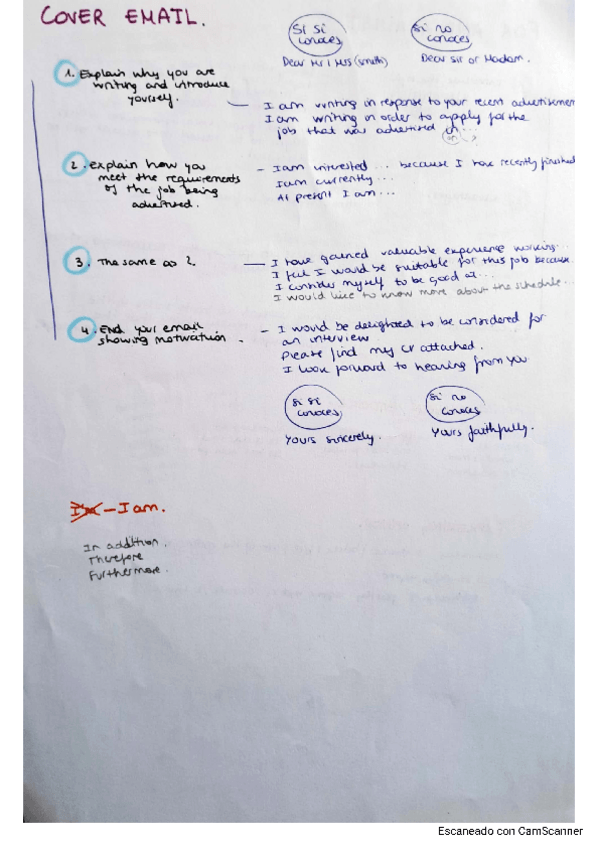 COVER EMAIL.
Si si
conoces
Si no
conoces
Dear Mr / Mrs (Smith)
Dear Sir or Madam.
1. Explain why you are
writing and introduce
yourself.
- I am writing in response to your recent advertisement
I am writing in order to apply for the
job that was advertised in...
2. Explain how you
meet the requirements
of the job being
advertised.
- I am interested ... because I have recently finished
I am currently...
At present I am...
3. The same as 2.
- I have gained valuable experience working...
I feel I would be suitable for this job because..
I consider myself to be good at...
I would like to know more about the schedule...
4. End your email
showing motivation.
- I would be delighted to be considered for
an interview
Please find my CV attached.
I look forward to hearing from you
Si si
conoces
Si no
conoces
Yours sincerely.
Yours faithfully.
I'm - I am.
In addition.
Therefore
Furthermore.
Escaneado con CamScanner